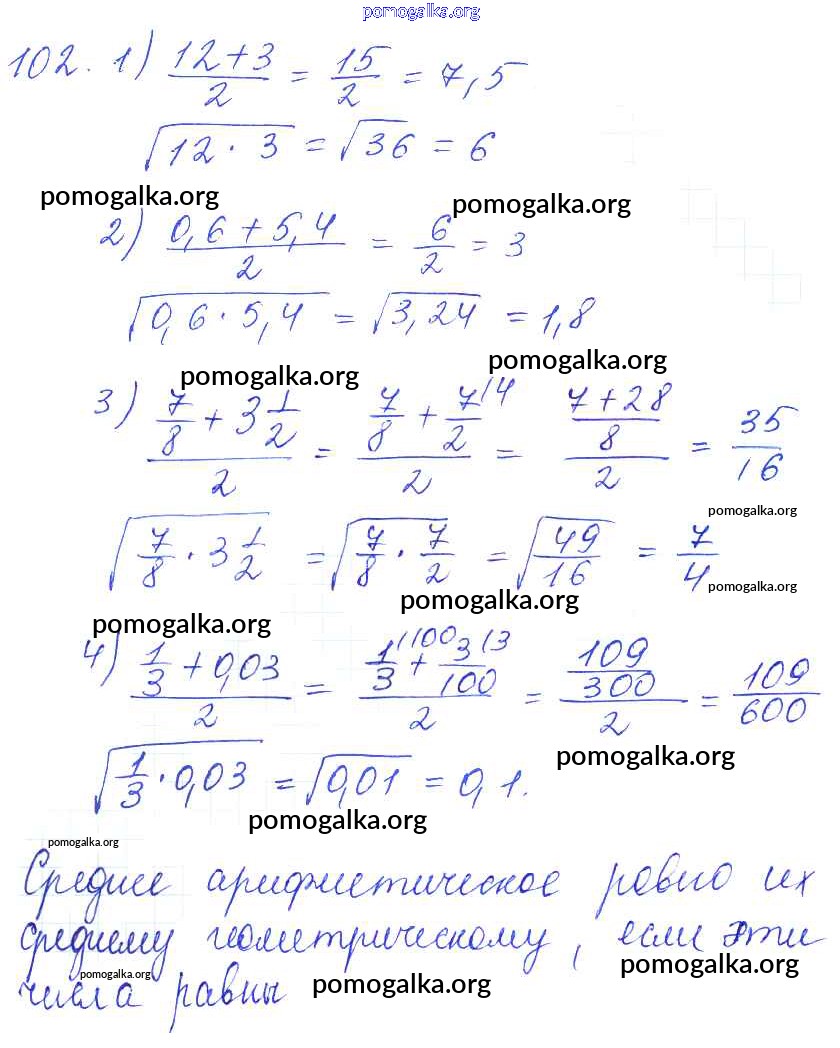 pomogalka.org
102. 1) (12+3)/2 = 15/2 = 7,5
√(12 · 3) = √36 = 6
pomogalka.org pomogalka.org
2) (0,6 + 5,4)/2 = 6/2 = 3
√(0,6 · 5,4) = √3,24 = 1,8
pomogalka.org pomogalka.org
3) (7/8 + 3 1/2)/2 = (7/8 + 7/2 ⁽⁴)/2 = ((7+28)/8)/2 = 35/16
pomogalka.org
√(7/8 · 3 1/2) = √(7/8 · 7/2) = √(49/16) = 7/4
pomogalka.org
pomogalka.org pomogalka.org
4) (1/3 + 0,03)/2 = (1/3 ⁽¹⁰⁰ + 3/100 ⁽³)/2 = (109/300)/2 = 109/600
pomogalka.org
√(1/3 · 0,03) = √0,01 = 0,1.
pomogalka.org
pomogalka.org
Среднее арифметическое равно их
среднему геометрическому, если эти
pomogalka.org pomogalka.org
числа равны
pomogalka.org